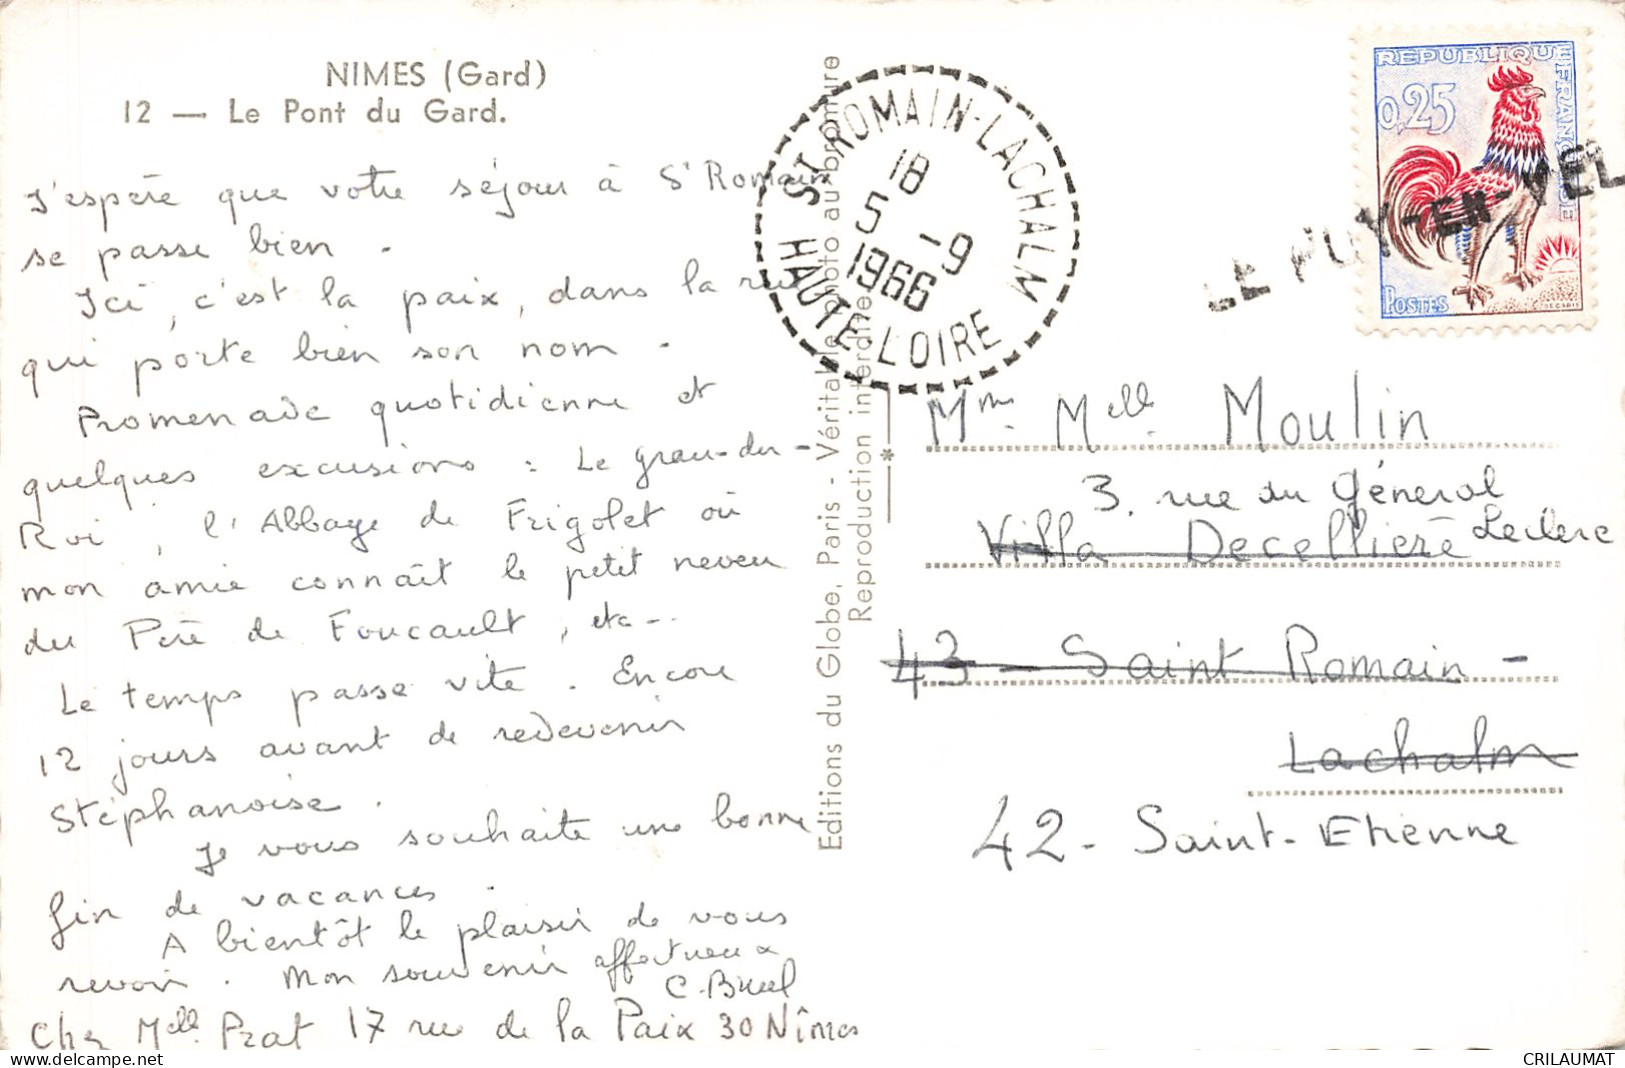 NIMES (Gard)
12 — Le Pont du Gard.
J'espère que votre séjour à St Romain
se passe bien.
Ici, c'est la paix, dans la rue
qui porte bien son nom.
Promenade quotidienne et
quelques excusions : Le grau-du-
Roi, l'Abbaye de Frigolet où
mon amie connaît le petit neveu
du Père de Foucault, etc...
Le temps passe vite. Encore
12 jours avant de redevenir
Stéphanoise.
Je vous souhaite une bonne
fin de vacances.
A bientôt le plaisir de vous
revoir. Mon souvenir affectueux
C. Buel
Chez Melle Prat 17 rue de la Paix 30 Nîmes
Editions du Globe, Paris - Véritable photo au bromure
Reproduction interdite
*
ST ROMAIN-LACHALM
18
5 -9
1966
HAUTE-LOIRE
REPUBLIQUE FRANÇAISE
0,25
POSTES
DECARIS
LE PUY-EN-VEL
Mme Melle Moulin
3, rue du Général
Leclerc
Villa Decellière
43 - Saint Romain -
Lachalm
42 - Saint-Etienne
CRILAUMAT